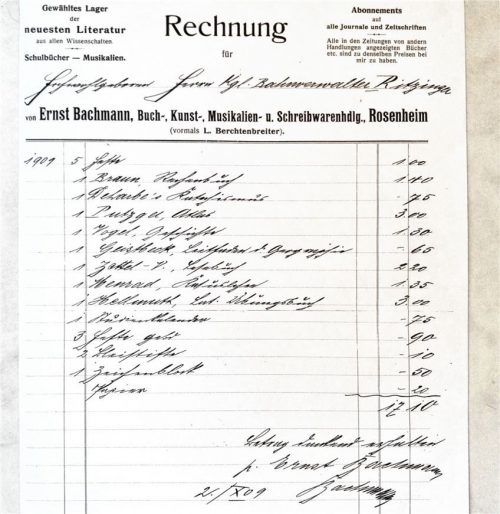 Gewähltes Lager
der
neuesten Literatur
aus allen Wissenschaften.
Schulbücher — Musikalien.
Rechnung
für
Abonnements
auf
alle Journale und Zeitschriften
Alle in den Zeitungen von andern
Handlungen angezeigten Bücher
etc. sind zu denselben Preisen bei
mir zu haben.
Herrn Kgl. Bahnverwalter Ritzinger
von Ernst Bachmann, Buch-, Kunst-, Musikalien- u. Schreibwarenhdlg., Rosenheim
(vormals L. Berchtenbreiter).
1909 5 Hefte 1.00
1 Braun, Rechenbuch 1.40
1 Deharbe's Katechismus -.75
1 Putzger, Atlas 3.00
1 Vogel, Geschichte 1.30
1 Geistbeck, Leitfaden d. Geographie -.65
1 Zettel-N., Lesebuch 2.20
1 1.35
1 Hellmuth, Lat. Übungsbuch 3.00
1 Studienkalender -.75
3 Hefte -.90
2 Bleistifte -.10
1 Zeichenblock -.50
Papier -.20
17.10
Betrag dankend erhalten
p. Ernst Bachmann
2./X 09